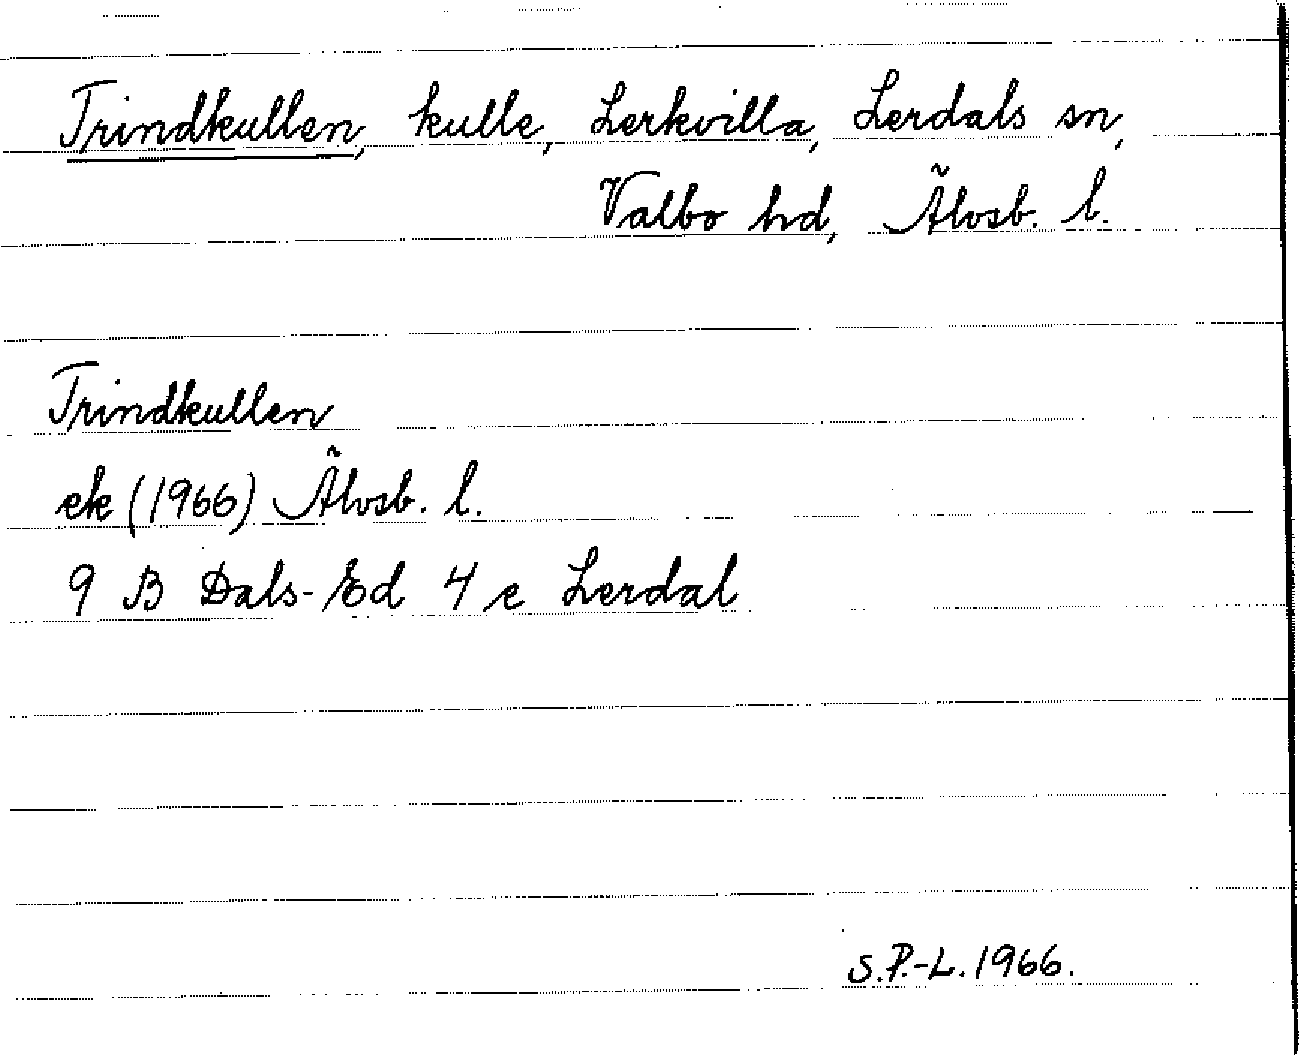 Trindkullen, kulle, Lerkvilla, Lerdals sn,
Valbo hd, Älvsb. l.
Trindkullen
ek (1966) Älvsb. l.
9 B Dals-Ed 4 e Lerdal
S.P.-L. 1966.